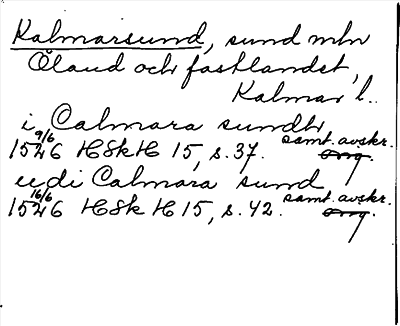 Kalmarsund, sund mln
Öland och fastlandet,
Kalmar l.
i Calmara sundh
9/6 samt. avskr.
1526 HSkH 15, s. 37. orig.
udi Calmara sund
16/6 samt. avskr.
1526 HSkH 15, s. 42. orig.